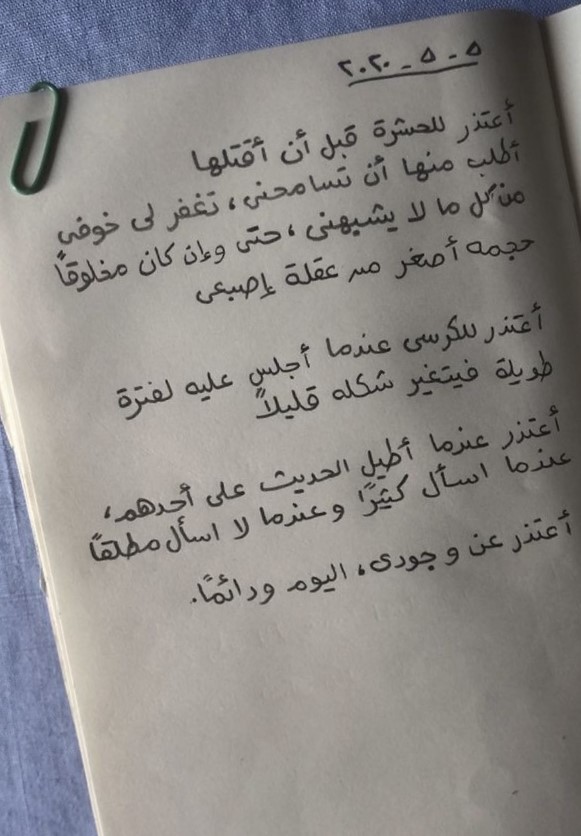 ٥ - ٥ - ٢٠٢٠
أعتذر للحشرة قبل أن أقتلها
أطلب منها أن تسامحنى، تغفر لى خوفى
من كل ما لا يشبهنى، حتى وإن كان مخلوقاً
حجمه أصغر من عقلة إصبعى
أعتذر للكرسى عندما أجلس عليه لفترة
طويلة فيتغير شكله قليلاً
أعتذر عندما أطيل الحديث على أحدهم،
عندما اسأل كثيرًا وعندما لا اسأل مطلقاً
أعتذر عن وجودى، اليوم ودائمًا.